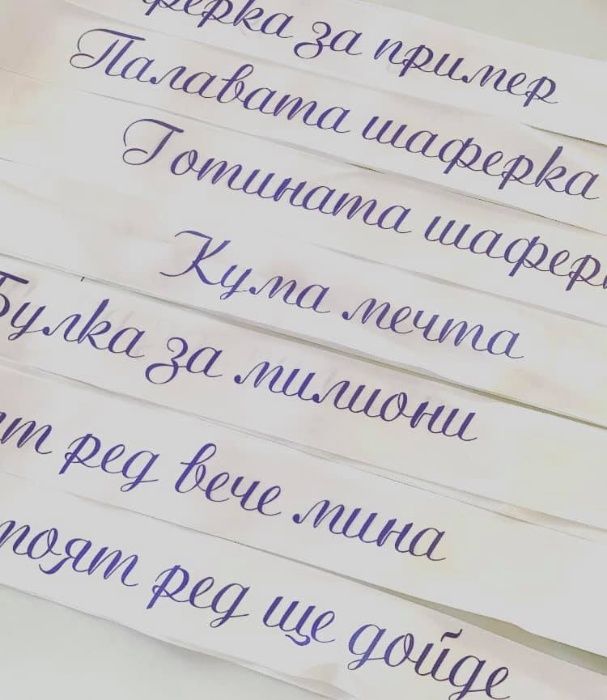 за пример
Палавата шаферка
Готината
Кума мечта
Булка за милиони
ред вече мина
ред ще дойде